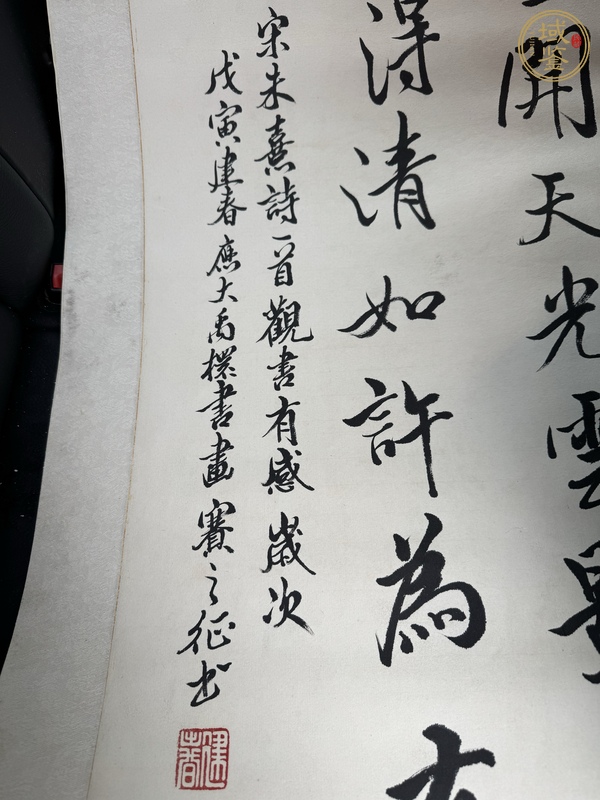 域鑒
開天光雲
得清如許為有
宋朱熹詩一首觀書有感歲次
戊寅建春應大禹書畫賽之征